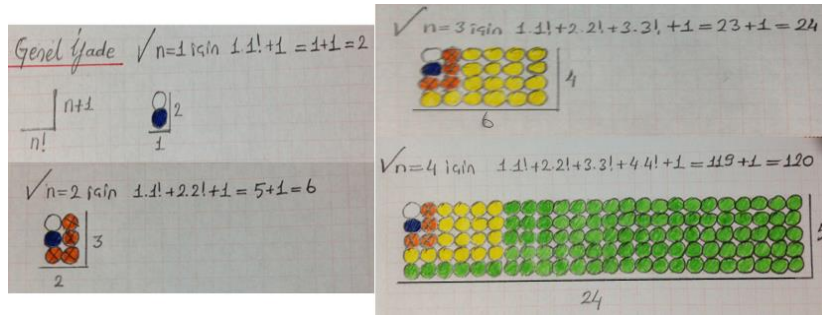 Genel İfade
√ n=1 için 1.1!+1 =1+1=2
n+1
n!
2
1
√ n=2 için 1.1!+2.2!+1= 5+1=6
3
2
√ n=3 için 1.1!+2.2!+3.3! +1=23+1=24
4
6
√ n=4 için 1.1!+2.2!+3.3!+4 4!+1=119+1=120
24